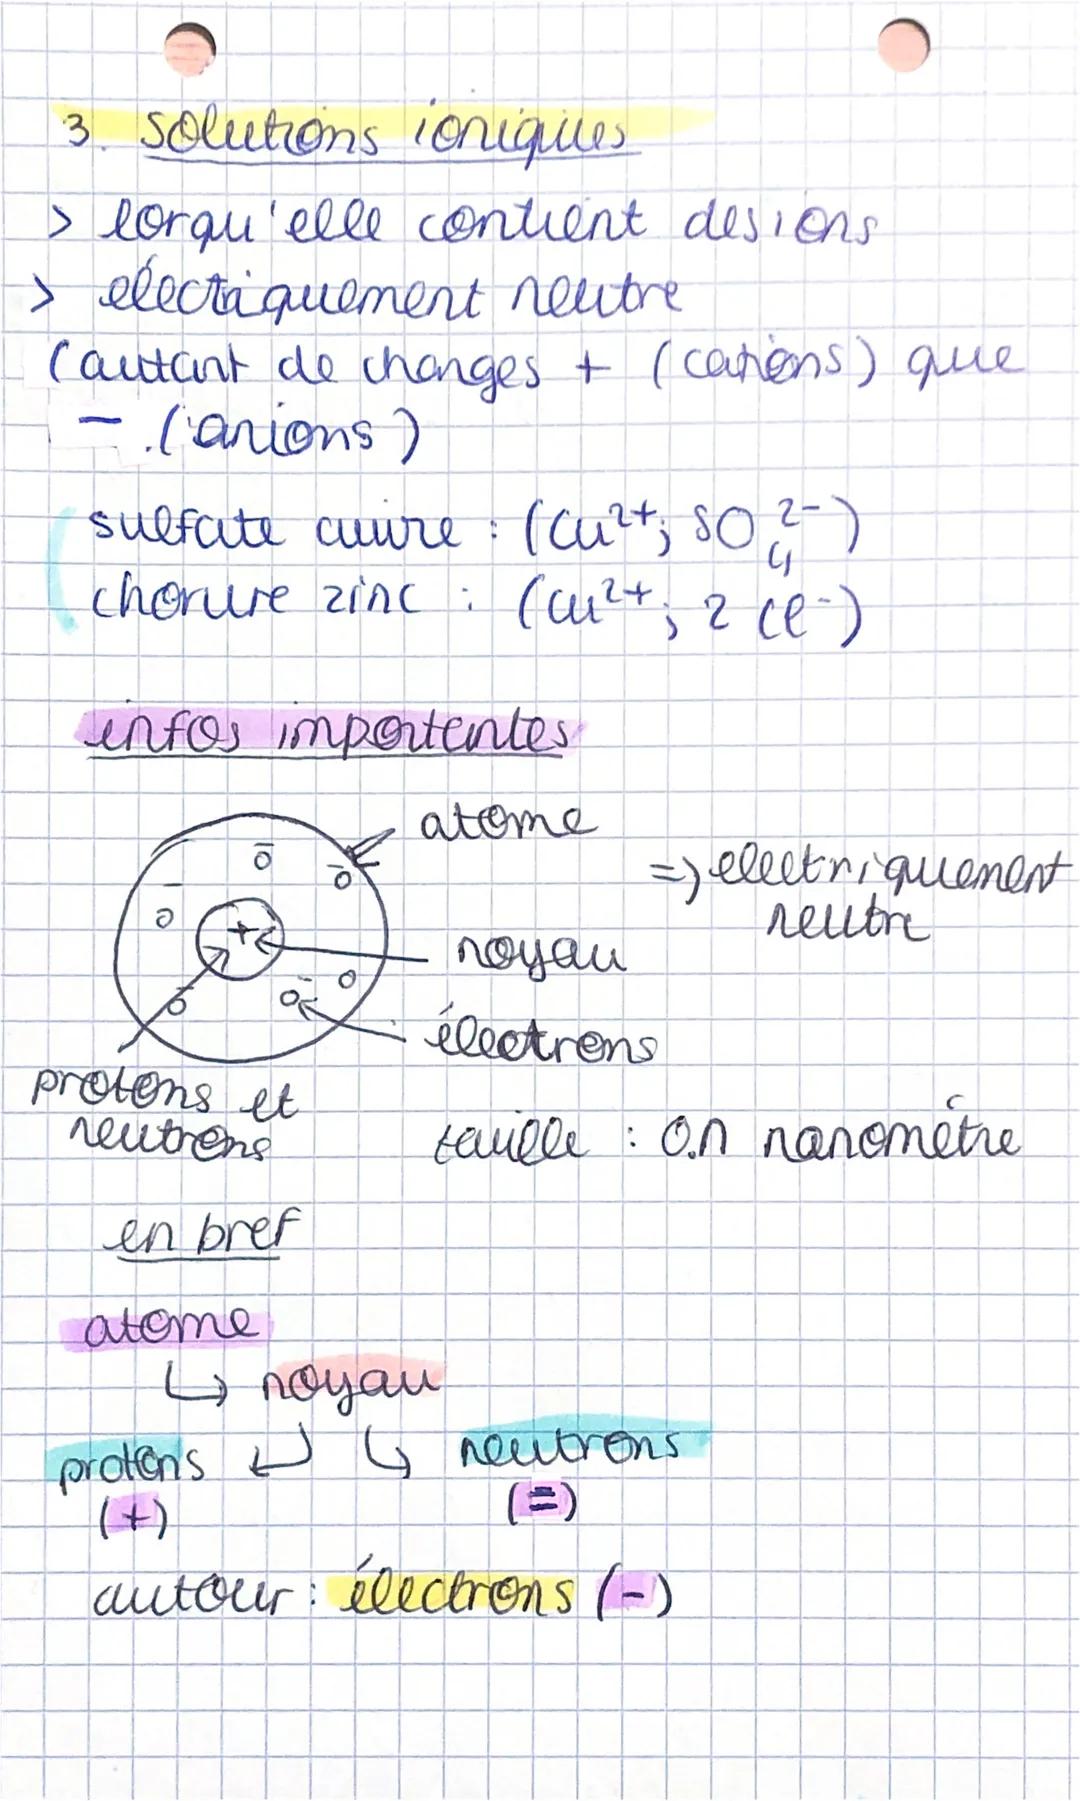 3. solutions ioniques
> lorqu'elle contient des ions
> électriquement neutre
(autant de changes + (cations) que
- (anions)
sulfate cuivre : (Cu²⁺; SO₄²⁻)
chorure zinc : (Cu²⁺; 2 Cl⁻)
infos importentes
atome
=> electriquement
neutre
+
noyau
électrons
protons et
neutrons
taille : 0.1 nanomètre
en bref
atome
↳ noyau
protons ↲ ↳ neutrons
(+) (=)
autour : électrons (-)